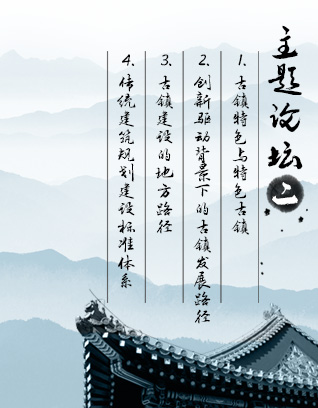 主题论坛二
1、古镇特色与特色古镇
2、创新驱动背景下的古镇发展路径
3、古镇建设的地方路径
4、传统建筑规划建设标准体系